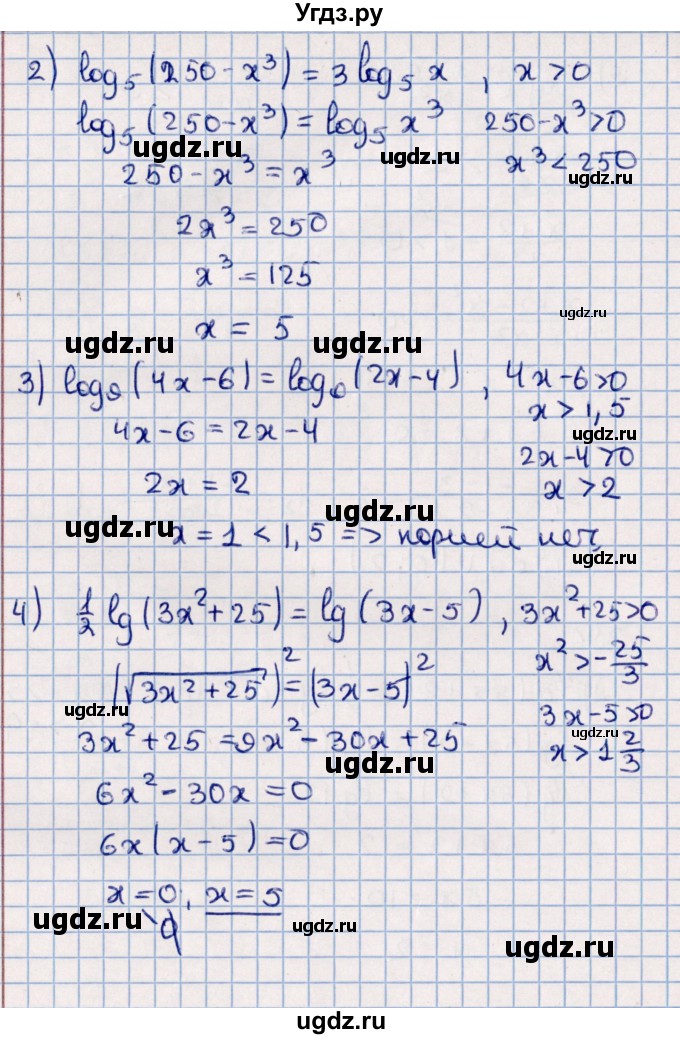 Угдз.ру
2) log₅(250-x³) = 3 log₅ x , x > 0
log₅(250-x³) = log₅ x³ 250-x³>0
ugdz.ru
250-x³ = x³ x³ < 250
ugdz.ru
2x³ = 250
x³ = 125
ugdz.ru
x = 5
ugdz.ru ugdz.ru
3) log₉(4x-6) = log₆(2x-4) , 4x-6>0
x > 1,5
4x-6 = 2x-4 ugdz.ru
2x-4>0
2x = 2 x > 2
ugdz.ru ugdz.ru
x = 1 < 1,5 => корней нет
4) 1/2 lg(3x²+25) = lg(3x-5) , 3x²+25>0
(√3x²+25)² = (3x-5)² x² > -25/3
ugdz.ru 3x-5>0
3x²+25 = 9x²-30x+25 ugdz.ru
ugdz.ru x > 1 2/3
6x²-30x = 0
6x(x-5) = 0
x = 0, x = 5
ugdz.ru ugdz.ru
ugdz.ru
ugdz.ru